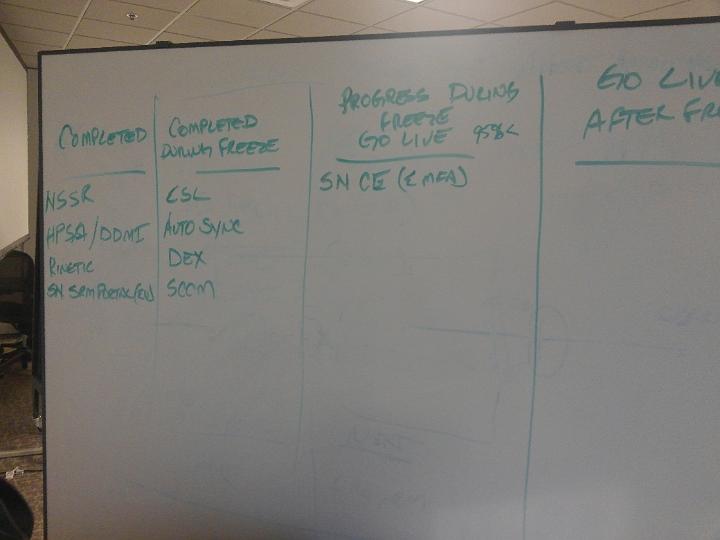 COMPLETED
NSSR
HPSA/DDMI
KINETIC
SN SRM PORTAL
COMPLETED
DURING FREEZE
CSL
AUTO SYNC
DEX
SCCM
PROGRESS DURING
FREEZE
GO LIVE 95%<
SN CE (& MFA)
GO LIVE
AFTER FRE